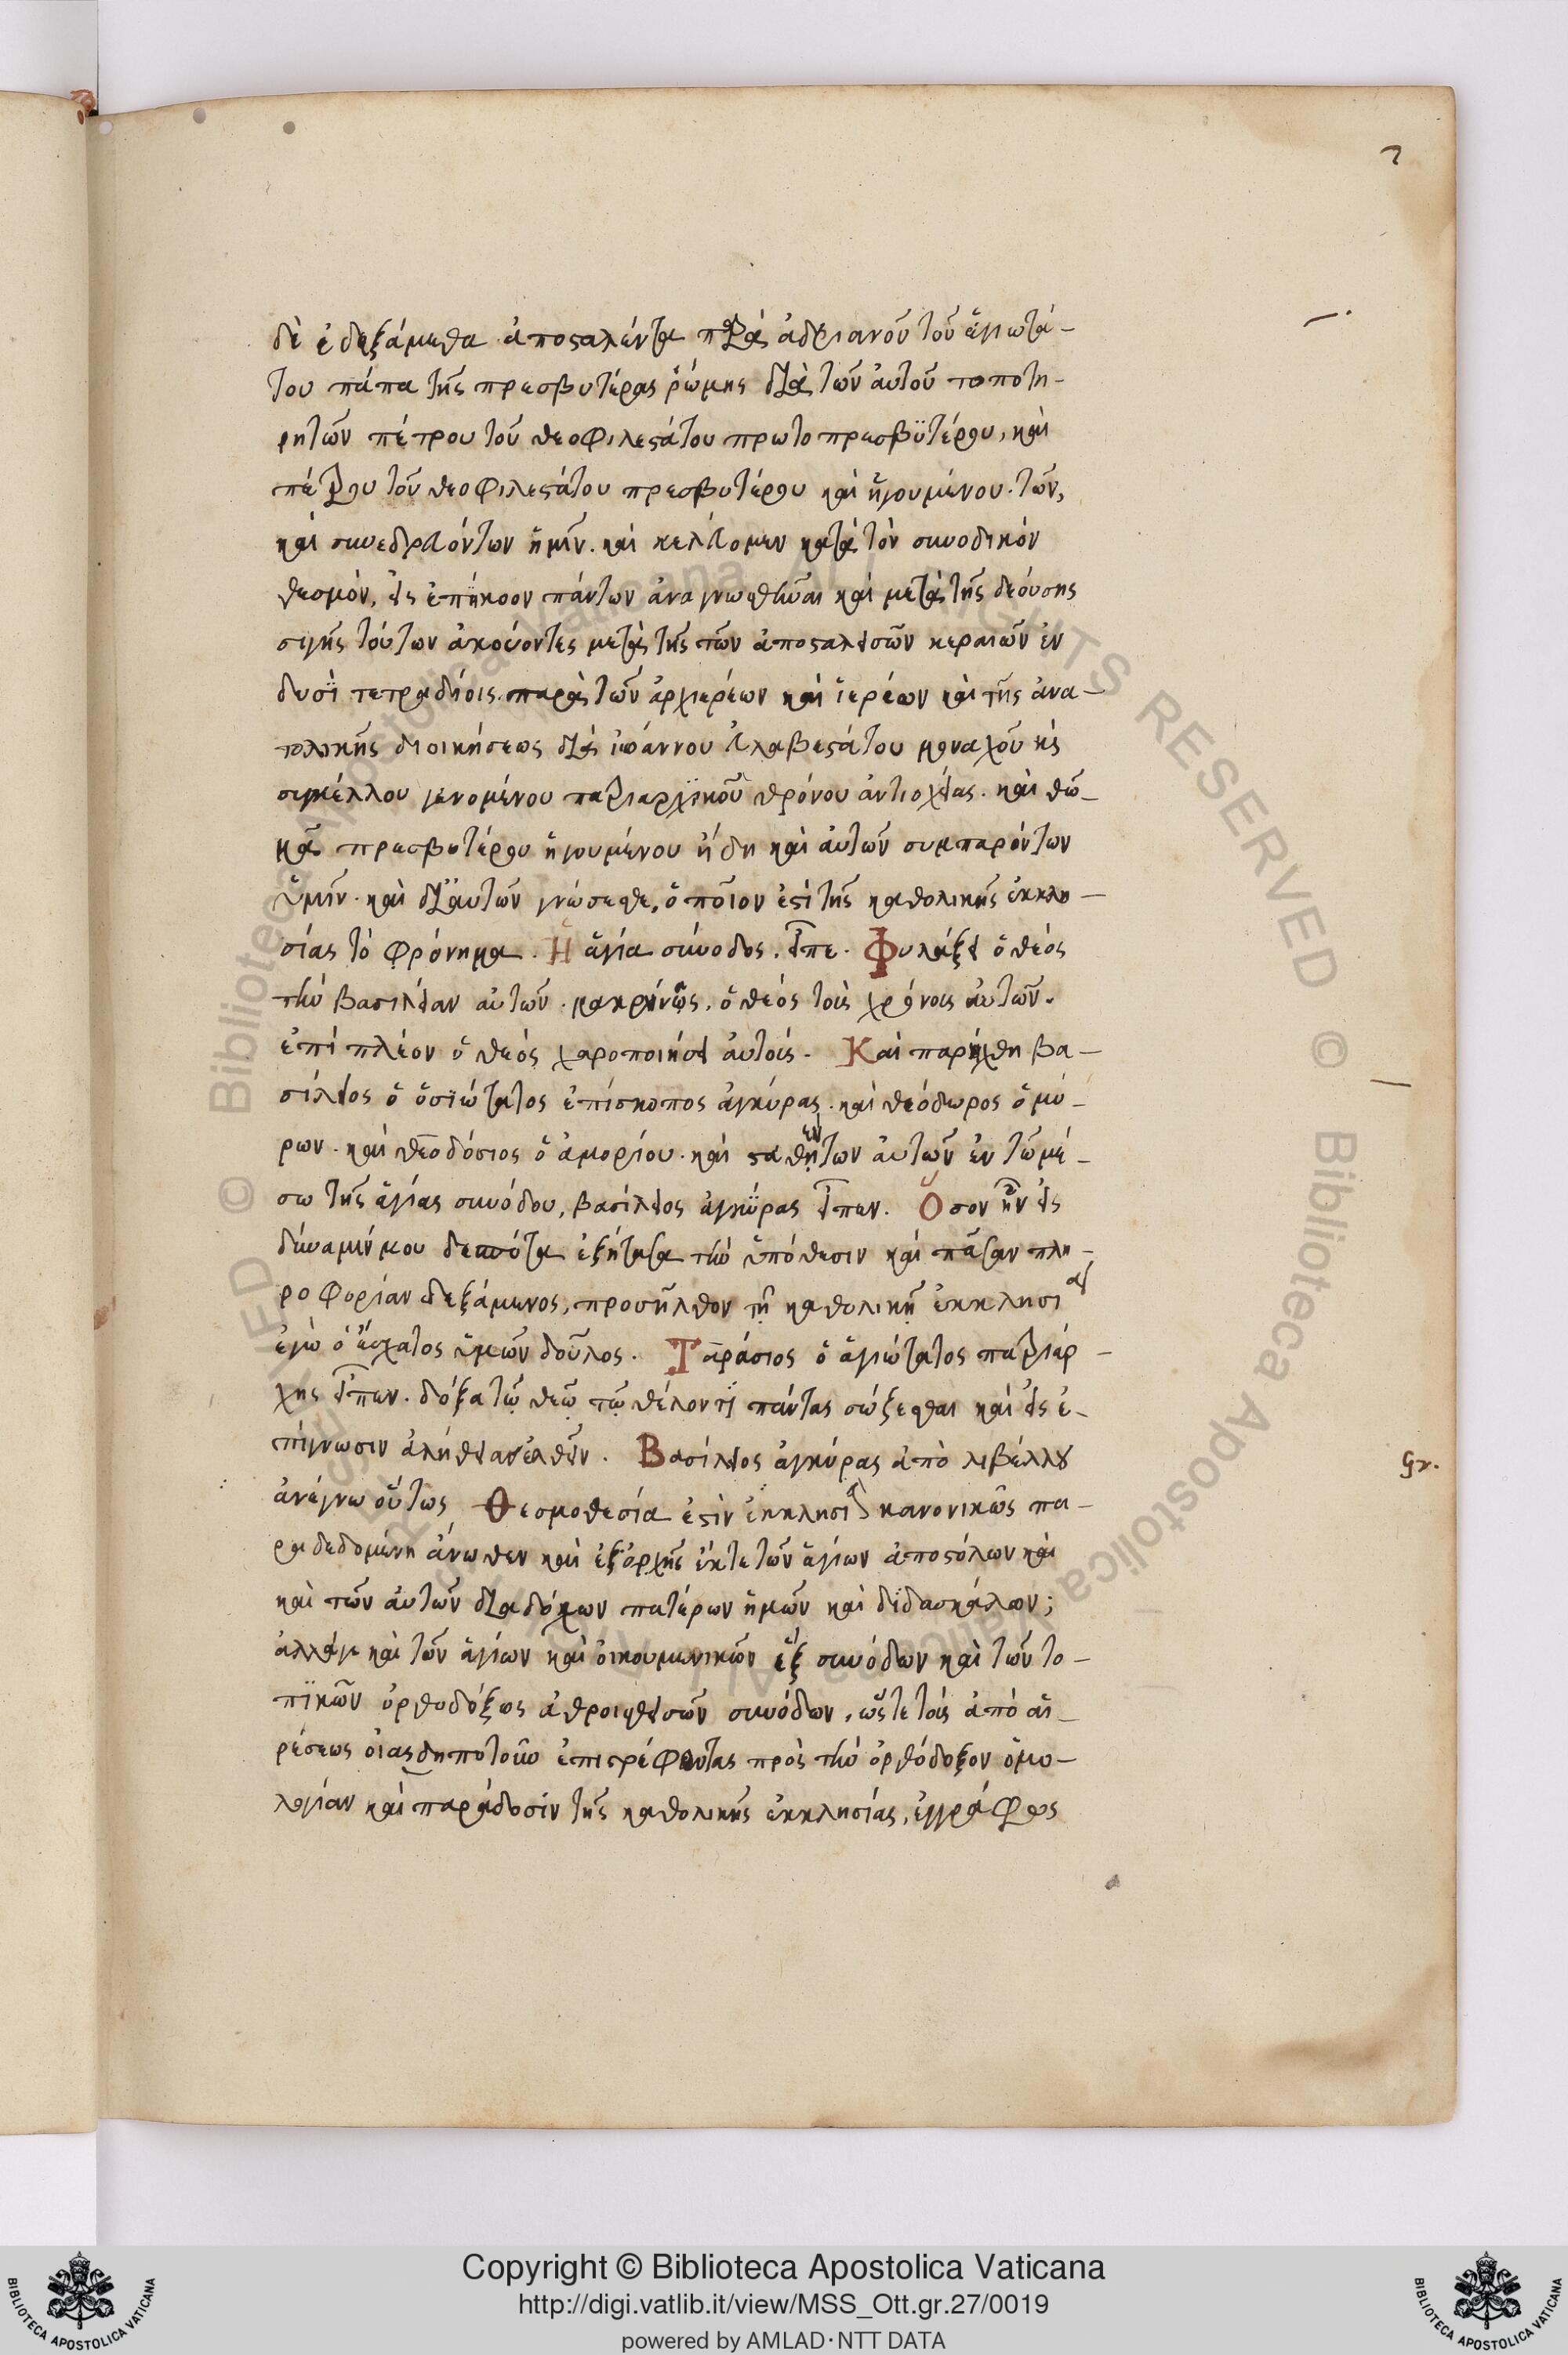 7
δὲ ἐδεξάμεθα ἀποσταλέντα παρὰ ἀδριανοῦ τοῦ ἁγιωτά-
του πάπα τῆς πρεσβυτέρας ῥώμης διὰ τῶν ἀυτοῦ τοποτη-
ρητῶν πέτρου τοῦ θεοφιλεστάτου πρωτοπρεσβϋτέρου, καὶ
πέτρου τοῦ θεοφιλεστάτου πρεσβυτέρου καὶ ἡγουμένου. τῶν,
καὶ συνεδρευόντων ἡμῖν. καὶ κελεύομεν κατὰ τὸν συνοδικὸν
θεσμὸν, εἰς ἐπήκοον πάντων ἀναγνωσθῆναι καὶ μετὰ τῆς δεόυσης
σιγῆς τούτων ἀκούοντες μετὰ τῆς τῶν ἀποσταλεισῶν κεραιῶν ἐν
δυσὶ τετραδίοις. παρὰ τῶν ἀρχιερέων καὶ ἱερέων καὶ τῆς ἀνα-
τολικῆς διοικήσεως διὰ ἰωάννου εὐλαβεστάτου μοναχοῦ κὶ
συγκέλλου γενομένου πατριαρχϊκοῦ θρόνου ἀντιοχείας. καὶ θω-
μᾶ πρεσβυτέρου ἡγουμένου ἤδη καὶ ἀυτῶν συμπαρόντων
ὑμῖν. καὶ δι' ἀυτῶν γνώσεσθε, ὁποῖον ἐστὶ τῆς καθολικῆς ἐκκλη-
σίας τὸ φρόνημα. Ἡ ἁγία σύνοδος. εἶπε. Φυλάξει ὁ θεὸς
τὴν βασιλείαν αὐτῶν. μακρύνῃ, ὁ θεὸς τοὺς χρόνους αὐτῶν.
ἐπὶ πλέον ὁ θεὸς χαροποιήσει ἀυτοὺς. Καὶ παρήχθη βα-
σίλειος ὁ ὁσϊώτατος ἐπίσκοπος ἀγκύρας. καὶ θεόδωρος ὁ μύ-
ρων. καὶ θεοδόσιος ὁ ἀμορίου. καὶ σταθέντων ἀυτῶν ἐν τῶ μέ-
σω τῆς ἁγίας συνόδου, βασίλειος ἀγκύρας εἶπεν. Ὅσον ἦν εἰς
δύναμίν μου δεσπότα ἐξήτασα τὴν ὑπόθεσιν καὶ πᾶσαν πλη-
ροφορίαν δεξάμενος, προσῆλθον τῇ καθολικῇ ἐκκλησία
ἐγὼ ὁ ἔσχατος ὑμῶν δοῦλος. Ταράσιος ὁ ἁγιώτατος πατριάρ-
χης εἶπεν. δόξα τῷ θεῷ τῷ θέλοντϊ πάντας σώζεσθαι καὶ εἰς ἐ-
πίγνωσιν ἀλήθειαν ἐλθεῖν. Βασίλειος ἀγκύρας ἀπὸ λιβέλλου
ἀνέγνω οὕτως Θεσμοθεσία ἐστὶν ἐκκλησία κανονικῶς πα-
ραδεδομένη ἄνωθεν καὶ ἐξαρχῆς ἔκτε τῶν ἁγίων ἀποστόλων καὶ
καὶ τῶν ἀυτῶν διαδόχων πατέρων ἡμῶν καὶ διδασκάλων;
ἀλλάγε καὶ τῶν ἁγίων καὶ ὀικουμενικῶν ἓξ συνόδων καὶ τῶν το-
πϊκῶν ὀρθοδόξως ἀθροισθεισῶν συνόδων, ὥστε τοὺς ἀπὸ αἱ-
ρέσεως οἱασδηποτοῦν ἐπιστρέφοντας πρὸς τὴν ὀρθόδοξον ὁμο-
λογίαν καὶ παράδοσίν τῆς καθολικῆς ἐκκλησίας, ἐγγράφως
Gr.
Copyright © Biblioteca Apostolica Vaticana
http://digi.vatlib.it/view/MSS_Ott.gr.27/0019
powered by AMLAD·NTT DATA
BIBLIOTECA APOSTOLICA VATICANA
BIBLIOTECA APOSTOLICA VATICANA